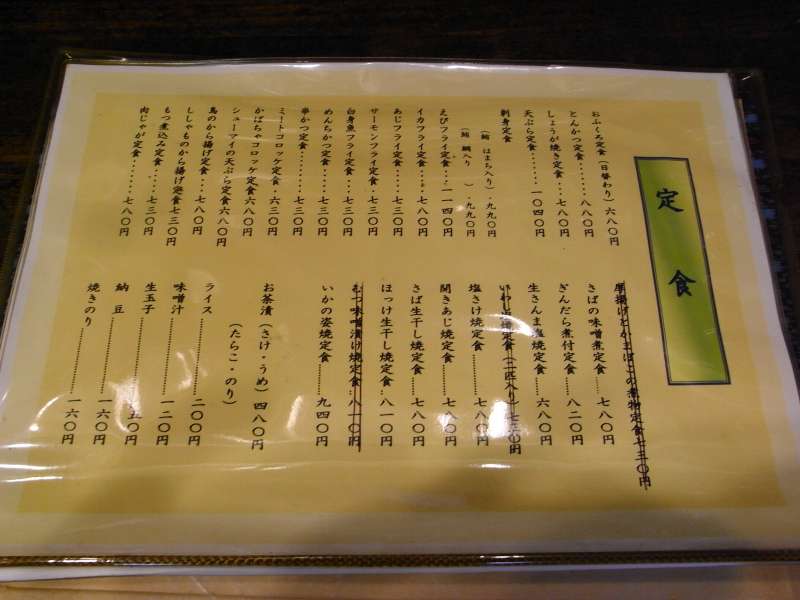 定食
おふくろ定食（日替わり）六八〇円
とんかつ定食‥‥‥‥八八〇円
しょうが焼き定食‥‥七八〇円
天ぷら定食‥‥‥‥一〇四〇円
刺身定食
（鮪 はまち入り）・九九〇円
（鮪 鯛入り ）・九九〇円
えびフライ定食‥一一四〇円
イカフライ定食‥‥七八〇円
あじフライ定食‥‥七三〇円
サーモンフライ定食・七三〇円
白身魚フライ定食‥七三〇円
めんちかつ定食‥‥七三〇円
串かつ定食‥‥‥‥七三〇円
ミートコロッケ定食・六三〇円
かぼちゃコロッケ定食六八〇円
シューマイの天ぷら定食六八〇円
鳥のから揚げ定食‥‥七八〇円
ししゃものから揚げ定食七三〇円
もつ煮込み定食‥‥七三〇円
肉じゃが定食‥‥‥七八〇円
厚揚げとかまぼこの煮物定食七三〇円
さばの味噌煮定食‥‥七八〇円
ぎんだら煮付定食‥‥八二〇円
生さんま塩焼定食‥‥六八〇円
塩さけ焼定食‥‥‥七八〇円
開きあじ焼定食‥‥七八〇円
さば生干し焼定食‥‥七八〇円
ほっけ生干し焼定食‥八一〇円
むつ味噌漬け焼定食‥八一〇円
いかの姿焼定食‥‥‥九四〇円
お茶漬（さけ・うめ）四八〇円
（たらこ・のり）
ライス‥‥‥‥‥‥二〇〇円
味噌汁‥‥‥‥‥‥一二〇円
生玉子
納豆‥‥‥‥‥‥一六〇円
焼きのり‥‥‥‥‥一六〇円